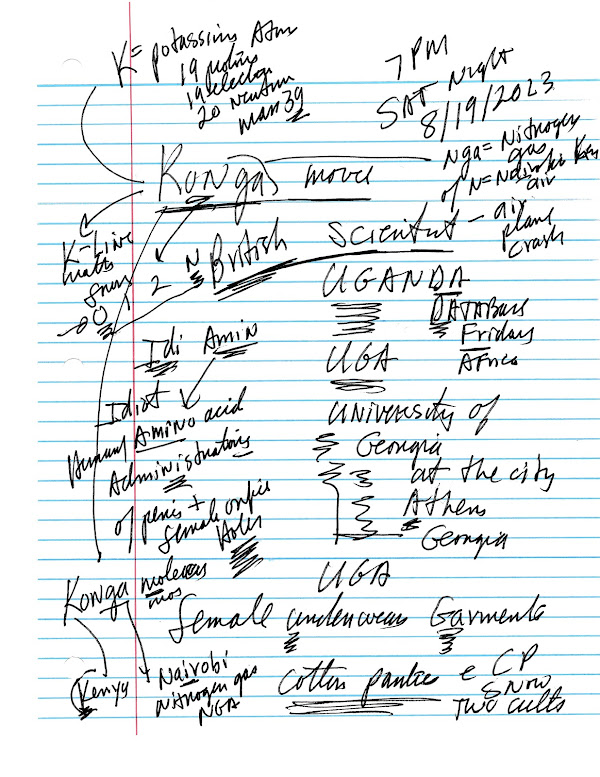 K = potassium Atom
19 protons
19 electrons
20 neutron
mass 39
7 PM
SAT Night
8/19/2023
Kongas movie
Nga = Nitrogen
gas
of N = Nairobi Ken
air
K-Line
British Scientist - air
plane
crash
2 N
UGANDA
DATABase
Fridays
Africa
Idi Amin
UGA
Idiot
Human Amino acid
Administrations
of penis +
female orifice
Holes
University of
Georgia
at the city
Athens
Georgia
Konga
UGA
female underwear Garments
Kenya
Nairobi
Nitrogen gas
NGA
Cotton panties e CP
Snow
Two cults